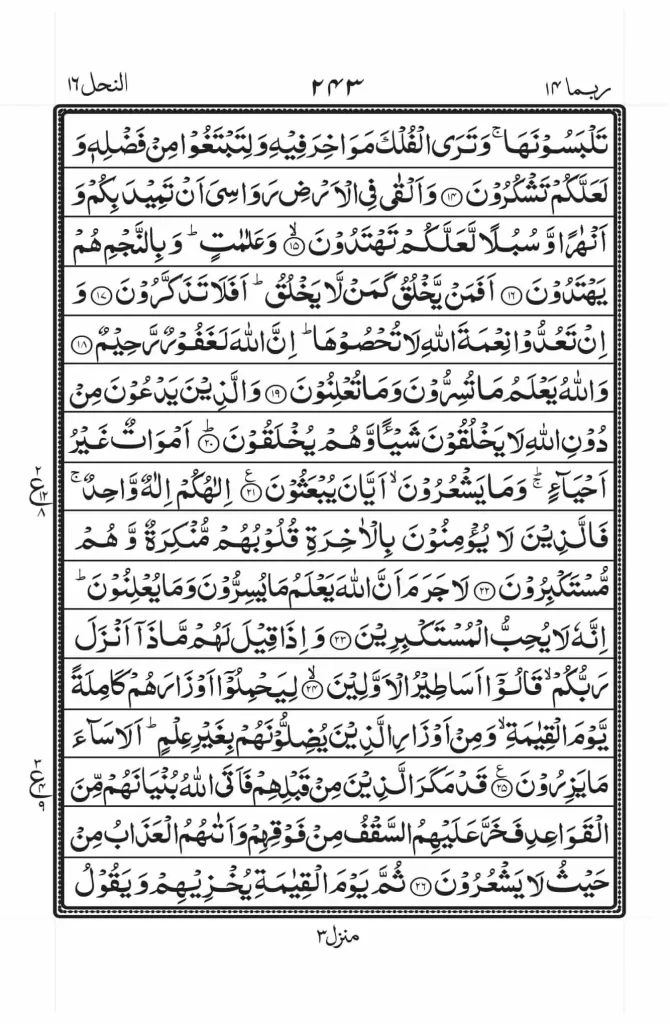 ربما ۱۴ ۲۴۳ النحل ۱۶
تَلۡبَسُوۡنَهَا‌ ۚ وَتَرَى الۡفُلۡكَ مَوَاخِرَ فِيۡهِ وَلِتَبۡتَغُوۡا مِنۡ فَضۡلِهٖ وَ
لَعَلَّكُمۡ تَشۡكُرُوۡنَ ‏﴿۱۴﴾‏ وَاَلۡقٰى فِى الۡاَرۡضِ رَوَاسِىَ اَنۡ تَمِيۡدَ بِكُمۡ وَ
اَنۡهٰرًا وَّسُبُلًا لَّعَلَّكُمۡ تَهۡتَدُوۡنَ ۙ‏﴿۱۵﴾‏ وَعَلٰمٰتٍ‌ؕ وَبِالنَّجۡمِ هُمۡ
يَهۡتَدُوۡنَ‏ ﴿۱۶﴾‏ اَفَمَنۡ يَّخۡلُقُ كَمَنۡ لَّا يَخۡلُقُ‌ؕ اَفَلَا تَذَكَّرُوۡنَ ‏﴿۱۷﴾‏ وَ
اِنۡ تَعُدُّوۡا نِعۡمَةَ اللّٰهِ لَا تُحۡصُوۡهَاؕ اِنَّ اللّٰهَ لَغَفُوۡرٌ رَّحِيۡمٌ ‏﴿۱۸﴾‏
وَاللّٰهُ يَعۡلَمُ مَا تُسِرُّوۡنَ وَمَا تُعۡلِنُوۡنَ ‏﴿۱۹﴾‏ وَالَّذِيۡنَ يَدۡعُوۡنَ مِنۡ
دُوۡنِ اللّٰهِ لَا يَخۡلُقُوۡنَ شَيۡـًٔا وَّهُمۡ يُخۡلَقُوۡنَؕ‏ ﴿۲۰﴾‏ اَمۡوَاتٌ غَيۡرُ
اَحۡيَآءٍ‌ ۚؕ وَمَا يَشۡعُرُوۡنَۙ اَيَّانَ يُبۡعَثُوۡنَ ﴿۲۱﴾ع‏ اِلٰهُكُمۡ اِلٰهٌ وَّاحِدٌ‌ ۚ
۲ ع ۱۲ ۸
فَالَّذِيۡنَ لَا يُؤۡمِنُوۡنَ بِالۡاٰخِرَةِ قُلُوۡبُهُمۡ مُّنۡكِرَةٌ وَّهُمۡ
مُّسۡتَكۡبِرُوۡنَ‏ ﴿۲۲﴾‏ لَا جَرَمَ اَنَّ اللّٰهَ يَعۡلَمُ مَا يُسِرُّوۡنَ وَمَا يُعۡلِنُوۡنَ‌ؕ
اِنَّهٗ لَا يُحِبُّ الۡمُسۡتَكۡبِرِيۡنَ‏ ﴿۲۳﴾‏ وَاِذَا قِيۡلَ لَهُمۡ مَّاذَاۤ اَنۡزَلَ
رَبُّكُمۡ‌ۙ قَالُوۡۤا اَسَاطِيۡرُ الۡاَوَّلِيۡنَۙ‏ ﴿۲۴﴾‏ لِيَحۡمِلُوۡۤا اَوۡزَارَهُمۡ كَامِلَةً
يَّوۡمَ الۡقِيٰمَةِ‌ۙ وَمِنۡ اَوۡزَارِ الَّذِيۡنَ يُضِلُّوۡنَهُمۡ بِغَيۡرِ عِلۡمٍؕ اَلَا سَآءَ
مَا يَزِرُوۡنَ ﴿۲۵﴾ع‏ قَدۡ مَكَرَ الَّذِيۡنَ مِنۡ قَبۡلِهِمۡ فَاَتَى اللّٰهُ بُنۡيَانَهُمۡ مِّنَ
۳ ع ۴ ۹
الۡقَوَاعِدِ فَخَرَّ عَلَيۡهِمُ السَّقۡفُ مِنۡ فَوۡقِهِمۡ وَاَتٰٮهُمُ الۡعَذَابُ مِنۡ
حَيۡثُ لَا يَشۡعُرُوۡنَ‏ ﴿۲۶﴾‏ ثُمَّ يَوۡمَ الۡقِيٰمَةِ يُخۡزِيۡهِمۡ وَيَقُوۡلُ
منزل ۳